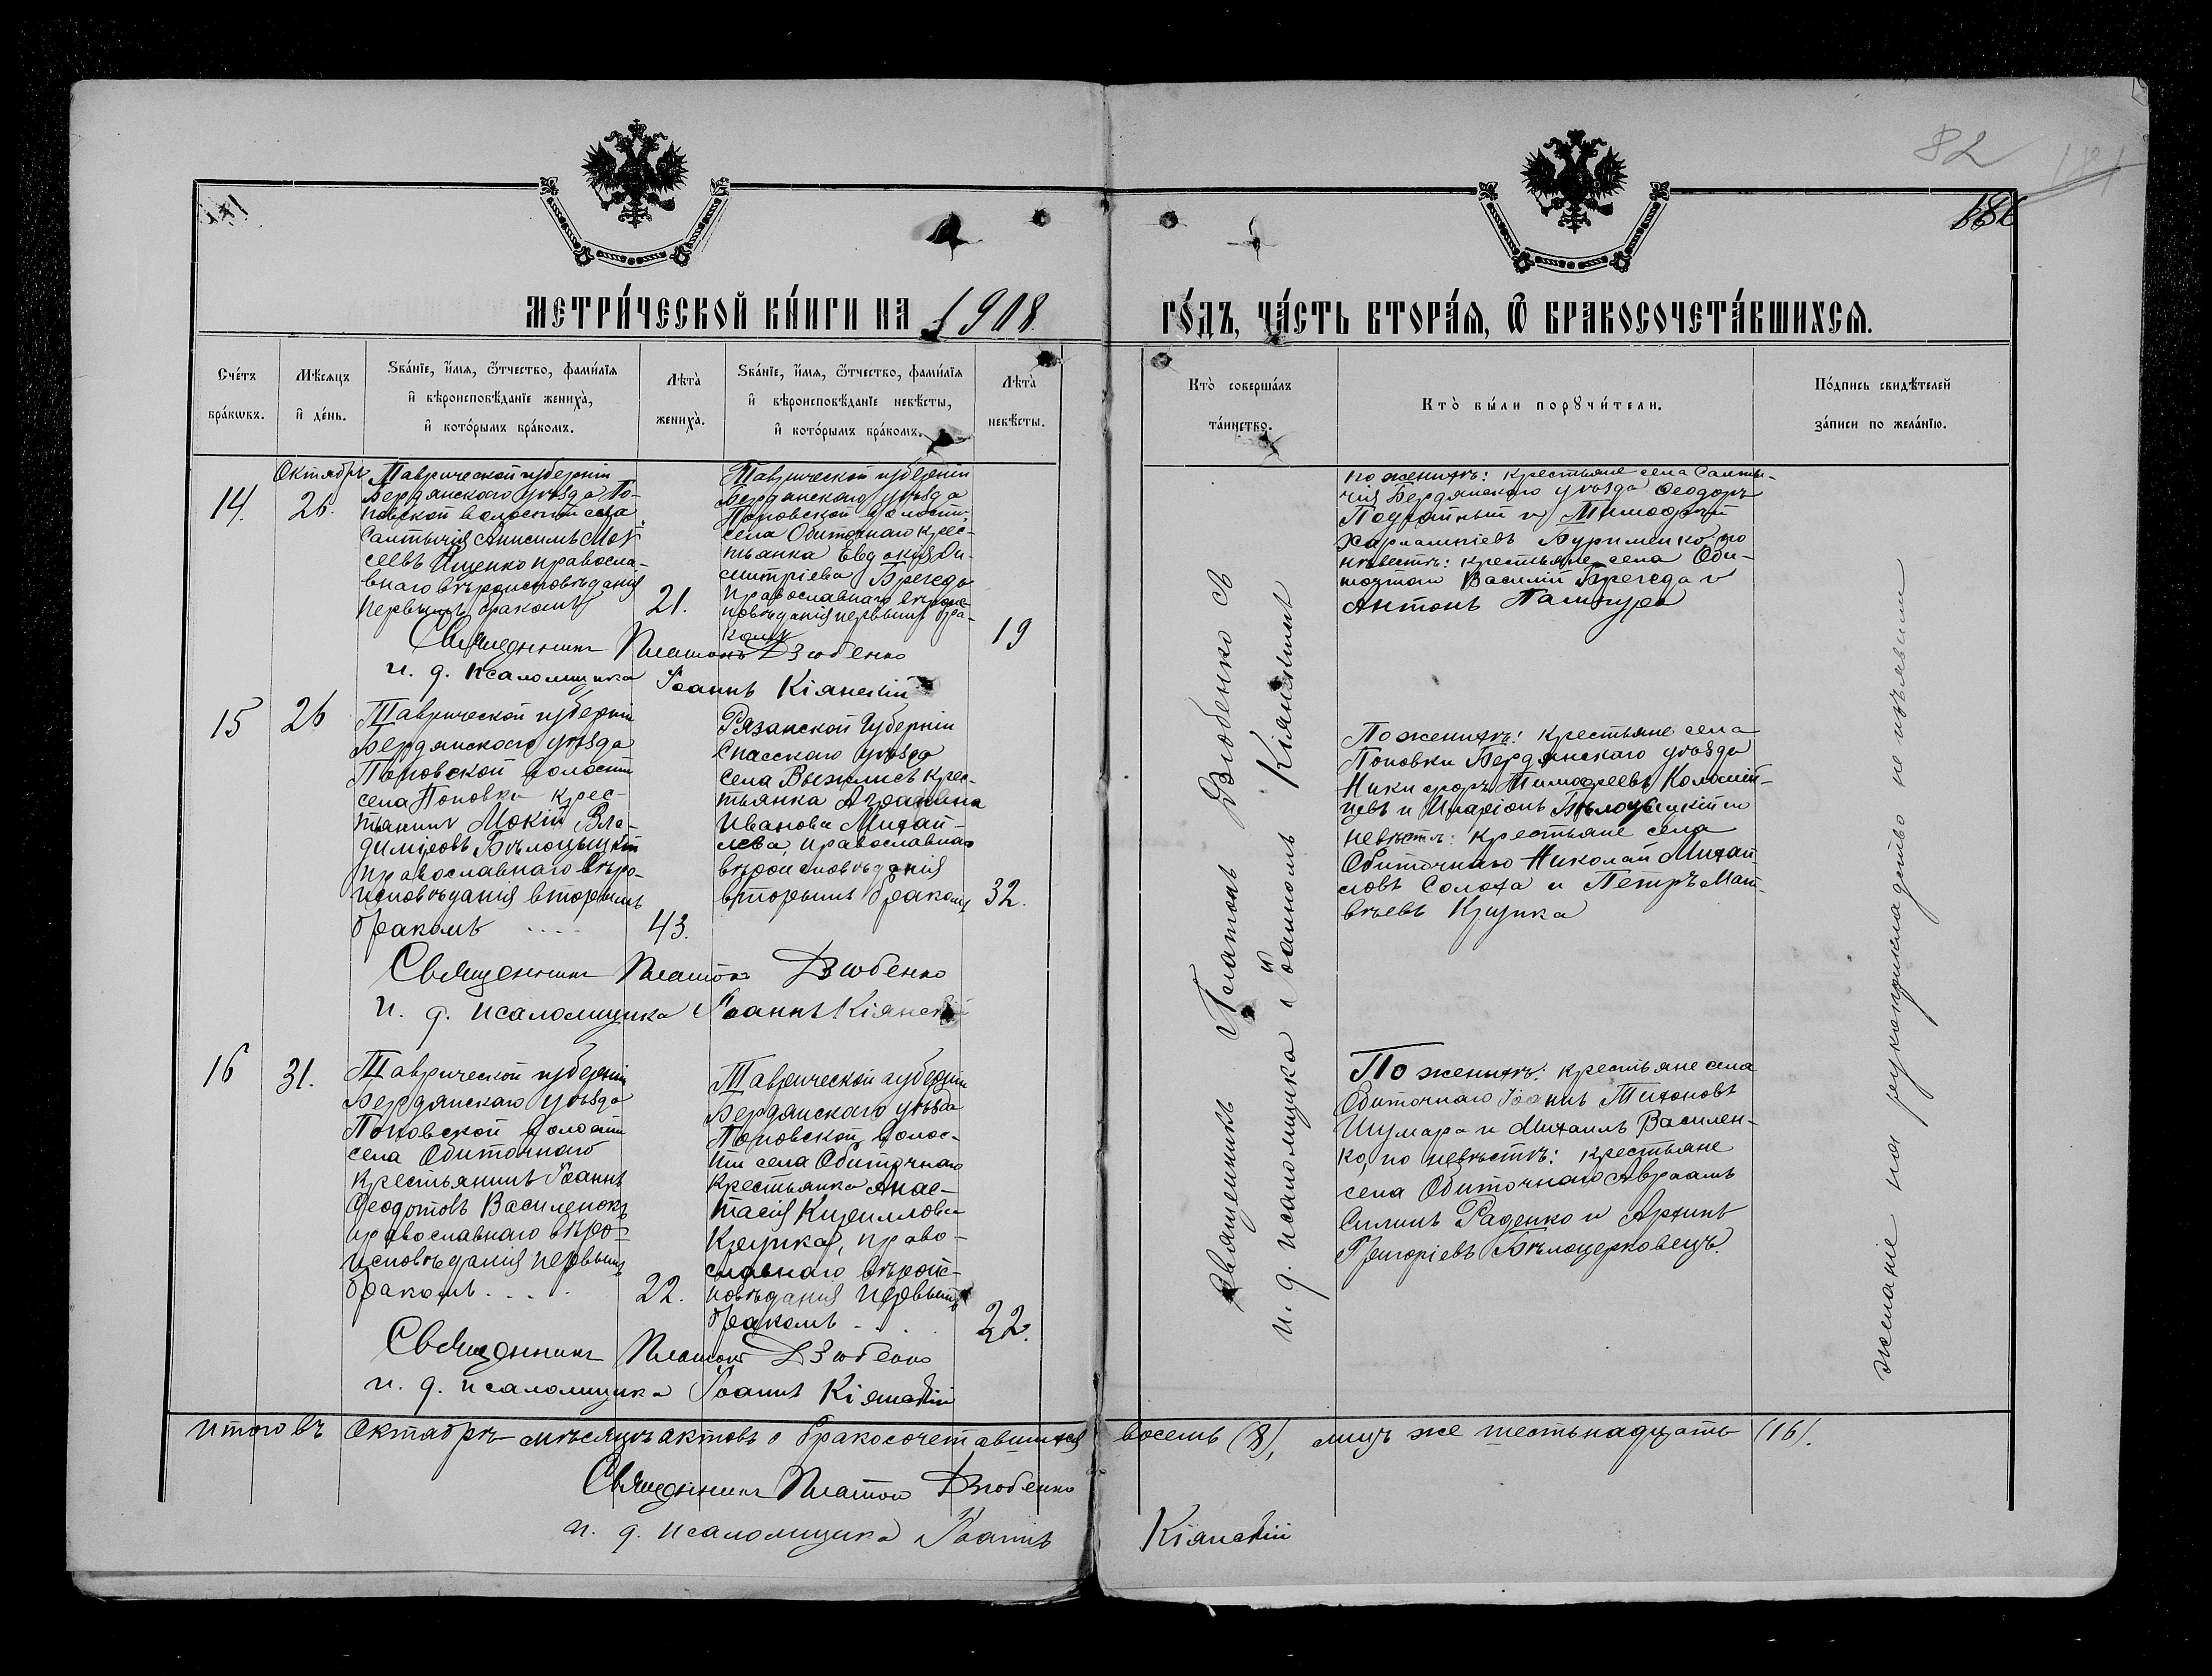 82
171
МЕТРИ́ЧЕСКОЙ КНИ́ГИ НА 1908 ГО́ДЪ, ЧА́СТЬ ВТОРА́Я, Ѡ БРАКОСОЧЕТА́ВШИХСЯ.
Сче́тъ
бра́кѡвъ.
Мѣ́сяцъ
и҆ де́нь.
Ѕва́нїе, и҆́мя, ѻ҆́тчество, фами́лїя
и҆ вѣроисповѣ́данїе жениха̀,
и҆ кото́рымъ бра́комъ.
Лѣ́та̀
жениха̀.
Ѕва́нїе, и҆́мя, ѻ҆́тчество, фами́лїя
и҆ вѣроисповѣ́данїе невѣ́сты,
и҆ кото́рымъ бра́комъ.
Лѣ́та̀
невѣ́сты.
Кто̀ соверша́лъ
та́инство.
Кто̀ бы́ли порꙋчи́тели.
По́дпись свидѣ́телей
за́писи по жела́нїю.
14.
Октябрь
26.
Таврической губерніи
Бердянскаго уѣзда По-
повской волости села
Салтычія Анисимъ Мой
сеевъ Ищенко правосла-
внаго вѣроисповѣданія
первымъ бракомъ
21.
Таврической губерніи
Бердянскаго уѣзда
Поповской волости,
села Обиточнаго крес-
тьянка Евдокія Ди-
митріева Брегеда
православнаго вѣроис-
повѣданія первымъ бра-
комъ
19
по женихѣ: крестьяне села Салты-
чія Бердянскаго уѣзда Ѳеодоръ
и Тимоѳей
Харлампіевъ Бурименко, по
невѣстѣ: крестьяне села Оби-
точнаго Василій Брегеда и
Антонъ
Священникъ Платонъ Дзюбенко
и. д. псаломщика Іоаннъ Кіянскій
15
26
Таврической губерніи
Бердянскаго уѣзда
Поповской волости
села Поповки крес-
тьянинъ Мокій Вла-
диміровъ Бѣлоцыцкій
православнаго вѣро-
исповѣданія вторымъ
бракомъ ....
43.
Рязанской губерніи
Спасскаго уѣзда
села крес-
тьянка Агрипина
Иванова Михай-
лова, православнаго
вѣроисповѣданія
вторымъ бракомъ
32.
По женихѣ: крестьяне села
Поповки Бердянскаго уѣзда
Никифоръ Тимоѳеевъ Коломій-
цевъ и Иларіонъ Бѣлоцыцкій по
невѣстѣ: крестьяне села
Обиточнаго Николай Михай-
ловъ Солоха и Петръ Мат-
вѣевъ Крупка
Священникъ Платонъ Дзюбенко
и. д. псаломщика Іоаннъ Кіянскій
16
31.
Таврической губерніи
Бердянскаго уѣзда
Поповской волости
села Обиточнаго
крестьянинъ Іоаннъ
Ѳеодотовъ Василенокъ
православнаго вѣро-
исповѣданія первымъ
бракомъ. . . .
22.
Таврической губерніи
Бердянскаго уѣзда
Поповской волос-
ти села Обиточнаго
крестьянка Анас-
тасія Кириллова
Крупка, право-
славнаго вѣроис-
повѣданія первымъ
бракомъ - .
22.
По женихѣ: крестьяне села
Обиточнаго Іоаннъ Тихоновъ
Шумара и Михаилъ Василен-
ко, по невѣстѣ: крестьяне
села Обиточнаго Авраамъ
Силинъ Раденко и Архипъ
Григоріевъ Бѣлоцерковецъ.
Священникъ Платонъ Дзюбенко
и. д. псаломщика Іоаннъ Кіянскій
Священникъ Платонъ Дзюбенко съ
и. д. псаломщика Іоанномъ Кіянскимъ
желаніе на рукоприкладство не изъявили
итого въ Октябрѣ мѣсяцѣ актовъ о бракосочетавшихся восемь (8), лицъ же шестьнадцать (16).
Священникъ Платонъ Дзюбенко
и. д. псаломщика Іоаннъ Кіянскій